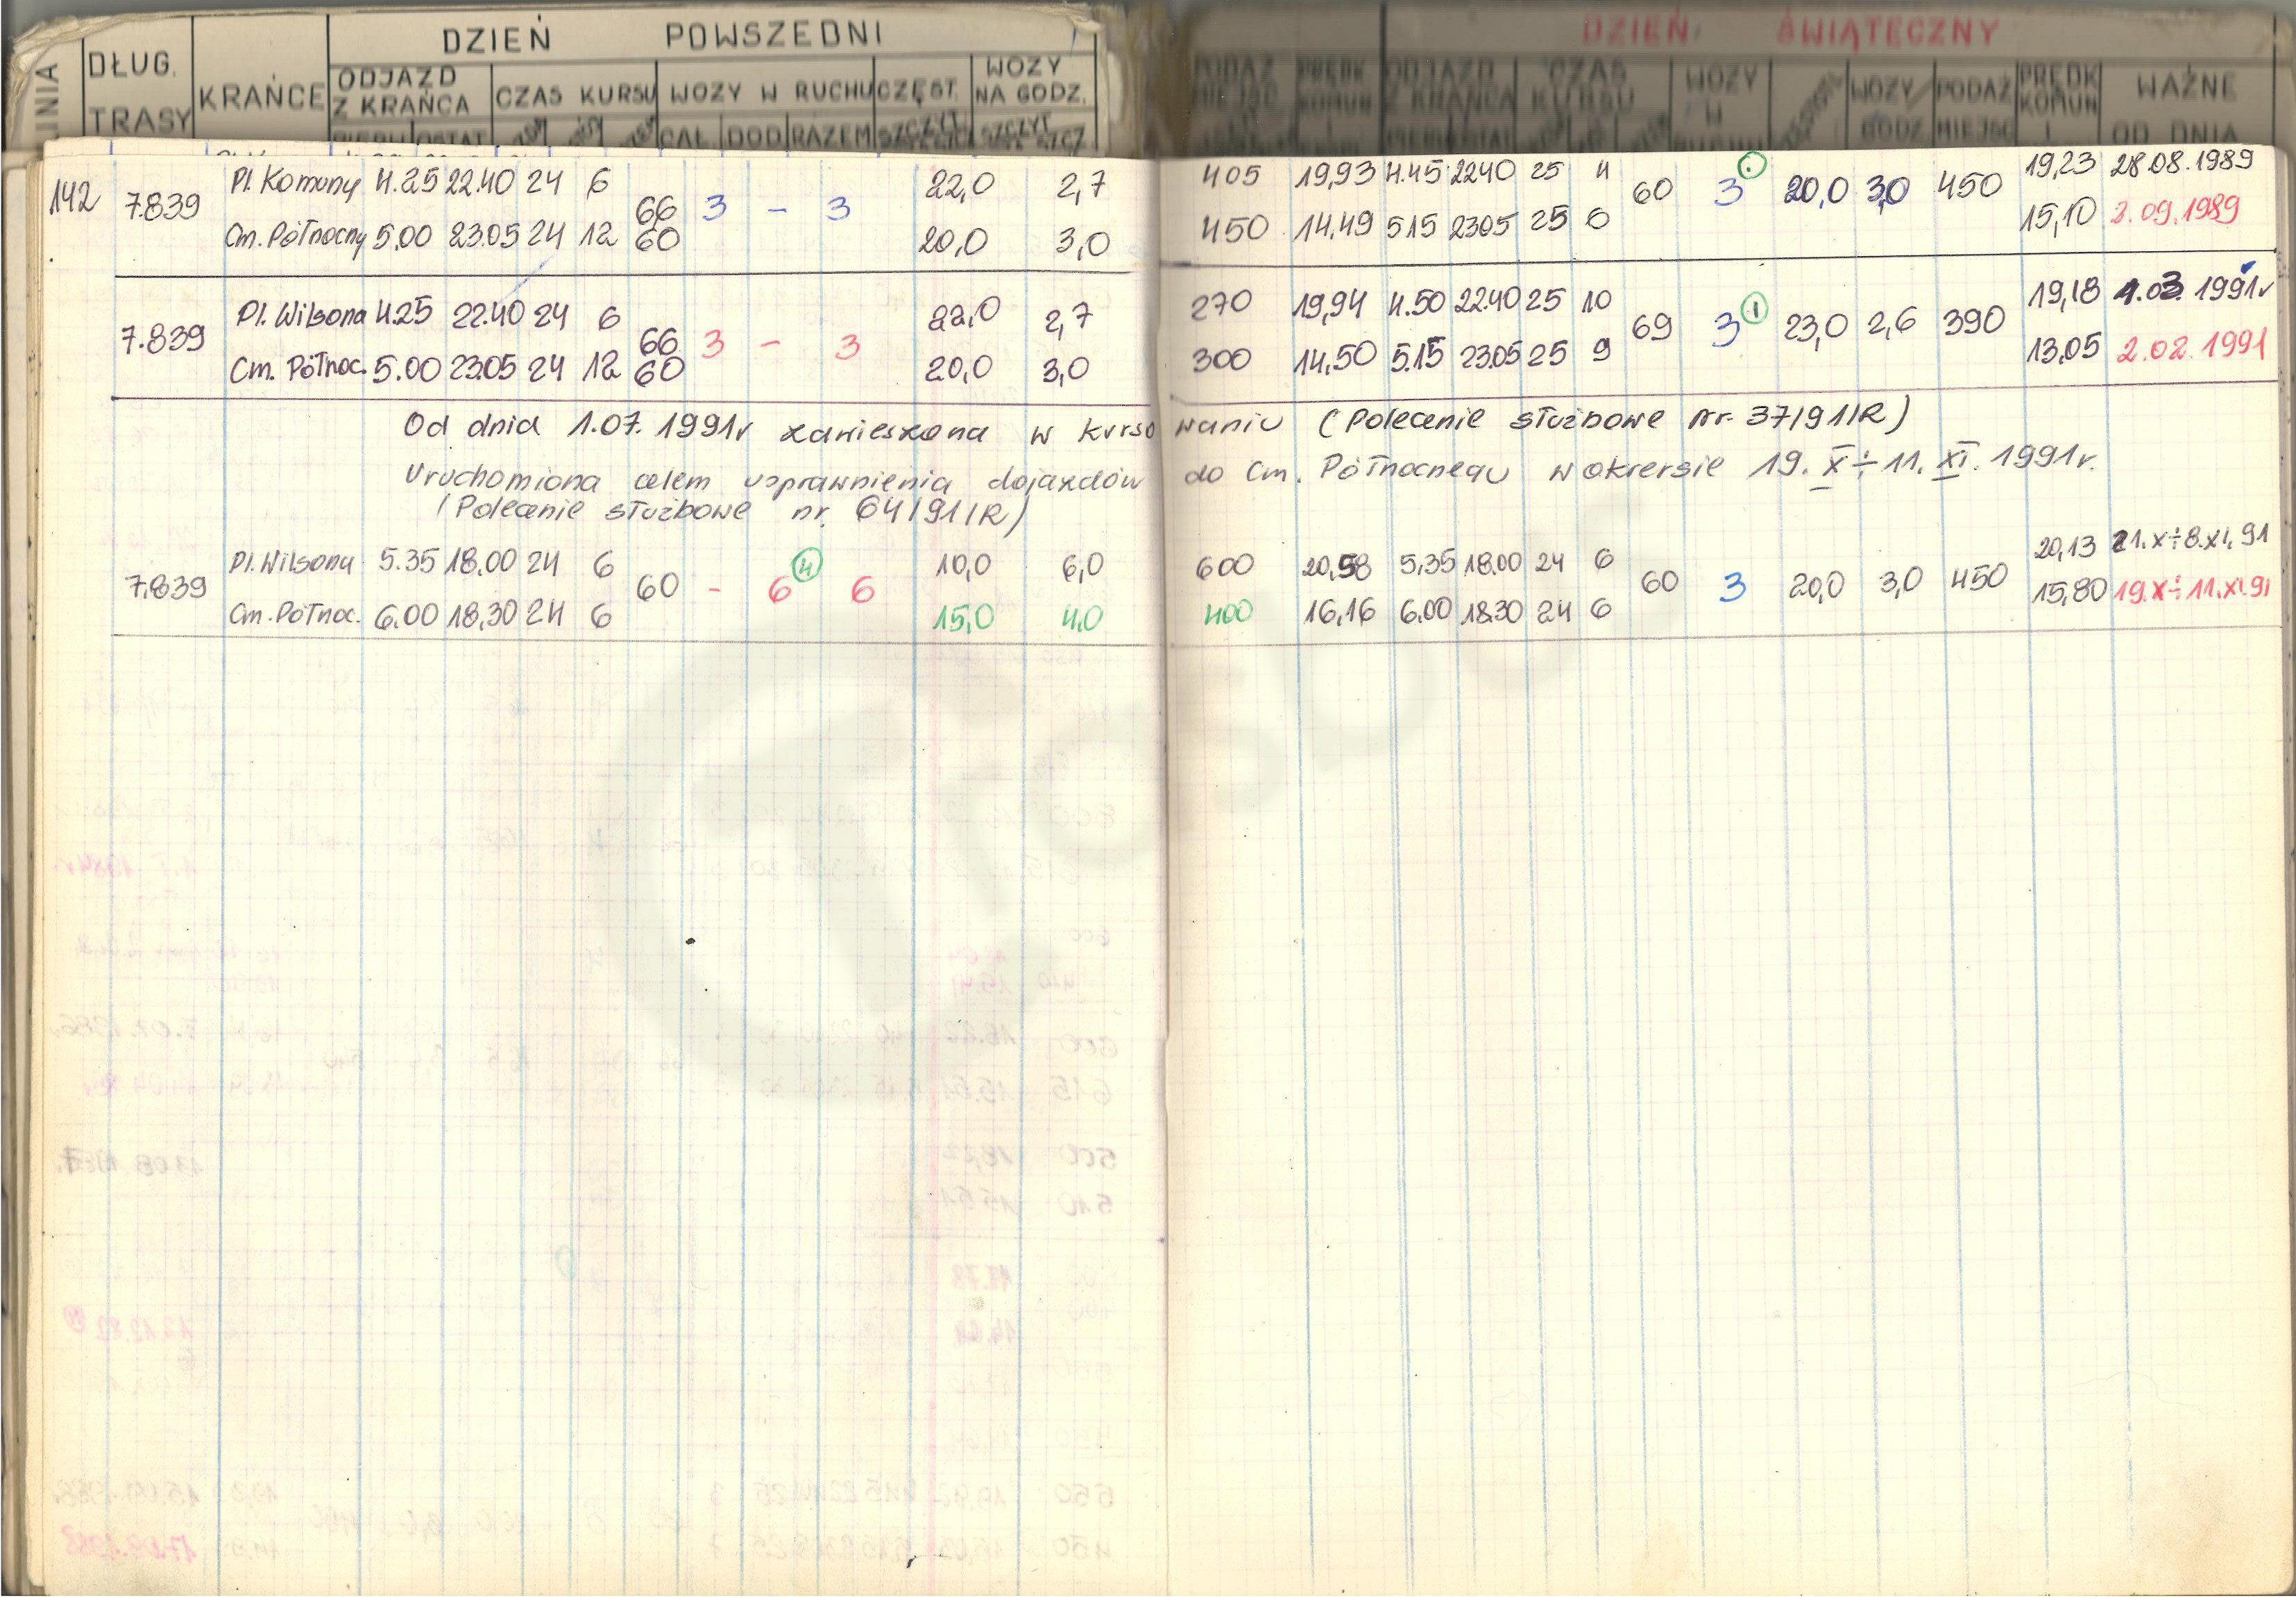 DZIEŃ POWSZEDNI DZIEŃ ŚWIĄTECZNY
LINIA DŁUG. TRASY KRAŃCE ODJAZD Z KRAŃCA CZAS KURSU WOZY W RUCHU CZĘST. WOZY NA GODZ. PODAŻ MIEJSC PRĘDK KOMUN ODJAZD Z KRAŃCA CZAS KURSU WOZY W WOZY GODZ PODAŻ MIEJSC PRĘDK KOMUN WAŻNE OD DNIA
PIERW OSTAT CAŁ DOD RAZEM SZCZYT SZCZYT
142 7.839 Pl. Komuny 4.25 22.40 24 6 66 3 - 3 22,0 2,7 405 19,93 4.45 2240 25 4 60 3 20,0 3,0 450 19,23 28.08.1989
Cm. Północny 5.00 23.05 24 12 60 20,0 3,0 450 14,49 515 2305 25 6 15,10 2.09.1989
7.839 Pl. Wilsona 4.25 22.40 24 6 66 3 - 3 22,0 2,7 270 19,94 4.50 22.40 25 10 69 3 1 23,0 2,6 390 19,18 1.03. 1991r
Cm. Północ. 5.00 23.05 24 12 60 20,0 3,0 300 14,50 5.15 23.05 25 9 13,05 2.02. 1991
Od dnia 1.07. 1991r zawieszona w kursowaniu (Polecenie służbowe nr. 37/91/R)
Uruchomiona celem usprawnienia dojazdów do Cm. Północnego w okresie 19. X ÷ 11. XI. 1991r.
(Polecenie służbowe nr. 64/91/R)
7.839 Pl. Wilsona 5.35 18.00 24 6 60 - 6 4 6 10,0 6,0 600 20,58 5.35 18.00 24 6 60 3 20,0 3,0 450 20,13 21.X÷8.XI.91
Cm. Północ. 6.00 18.30 24 6 15,0 4,0 400 16,16 6.00 18.30 24 6 15,80 19.X÷11.XI.91